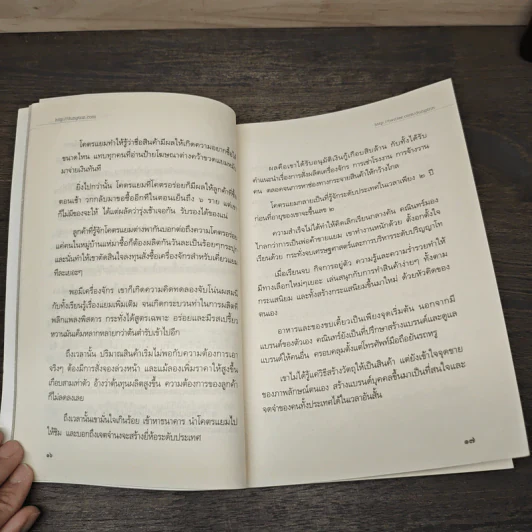 โคตรแยมทำให้รู้ว่าชื่อสินค้ามีผลให้เกิดความอยากซื้อใน
ขนาดไหน แทบทุกคนที่อ่านป้ายโฆษณาต่างคว้าขวดแยมหยิบ
มาจ่ายเงินทันที
ยิ่งไปกว่านั้น โคตรแยมที่โคตรอร่อยก็มีผลให้ลูกค้าที่ซื้อ
ตอนเช้า วกกลับมาขอซื้ออีกทีในตอนเย็นถึง ๖ ราย แต่
ก็ไม่มีของจะให้ ได้แต่ผลัดว่ารุ่งเช้าเจอกัน รับรองได้ของแน่
ลูกค้าที่รู้จักโคตรแยมต่างพากันบอกต่อถึงความโคตรอร่อย
แค่คนในหมู่บ้านแห่มาซื้อก็ต้องผลิตกันวันละเป็นร้อยๆกระปุก
และนั่นทำให้เขาตัดสินใจลงทุนสั่งซื้อเครื่องจักรสำหรับเคี่ยวแยม
ทีละเยอะๆ
พอมีเครื่องจักร เขาก็เกิดความคิดทดลองจับโน่นผสมนี่
กับทั้งเรียนรู้เรื่องแยมเพิ่มเติม จนเกิดกระบวนท่าในการผลิต
พลิกแพลงพิสดาร กระทั่งได้สูตรเฉพาะ อร่อยและมีรสเปรี้ยว
หวานมันเค็มหลากหลายกว่าต้นตำรับเข้าไปอีก
ถึงเวลานั้น ปริมาณสินค้าเริ่มไม่พอกับความต้องการเอา
จริงๆ ต้องมีการสั่งจองล่วงหน้า และแม้ลองเพิ่มราคาให้สูงขึ้น
เกือบสามเท่าตัว อ้างว่าต้นทุนผลิตสูงขึ้น ความต้องการของลูกค้า
ก็ไม่ลดลงเลย
ถึงเวลานั้นเขามั่นใจเกินร้อย เข้าหาธนาคาร นำโคตรแยมไป
ให้ชิม และบอกถึงเจตจำนงจะสร้างยี่ห้อระดับประเทศ
๑๖
ผลคือเขาได้รับอนุมัติเงินกู้เกือบสิบล้าน กับทั้งได้รับ
คำแนะนำเรื่องการสั่งผลิตเครื่องจักร การเช่าโรงงาน การจ้างงาน
คน ตลอดจนการหาช่องทางกระจายสินค้าให้กว้างไกล
โคตรแยมกลายเป็นที่รู้จักระดับประเทศในเวลาเพียง ๒ ปี
ก่อนที่อายุของเขาจะขึ้นเลข ๒
ความสำเร็จไม่ได้ทำให้คิดเลิกเรียนกลางคัน คณินทร์มอง
ไกลกว่าการเป็นพ่อค้าขายแยม เขาทำงานหนักด้วย ตั้งอกตั้งใจ
เรียนด้วย กระทั่งจบเศรษฐศาสตร์และการบริหารระดับปริญญาโท
เมื่อเรียนจบ กิจการอยู่ตัว ความรู้และความร่ำรวยทำให้
มีทางเลือกใหม่ๆเยอะ เล่นสนุกกับการทำสินค้าง่ายๆ ทั้งตาม
กระแสนิยม และทั้งสร้างกระแสนิยมขึ้นมาใหม่ ด้วยหัวคิดของ
ตนเอง
อาหารและของขบเคี้ยวเป็นเพียงจุดเริ่มต้น นอกจากมี
แบรนด์ของตัวเอง คณินทร์ยังเป็นที่ปรึกษาสร้างแบรนด์และดูแล
แบรนด์ให้คนอื่น ครอบคลุมตั้งแต่โทรศัพท์มือถือยันรถหรู
เขาไม่ได้รู้แค่วิธีสร้างวัตถุให้เป็นสินค้า แต่ยังเข้าใจจุดขาย
ของภาพลักษณ์ตนเอง สร้างแบรนด์บุคคลขึ้นมาเป็นที่สนใจและ
จดจำของคนทั้งประเทศได้ในเวลาอันสั้น
๑๗